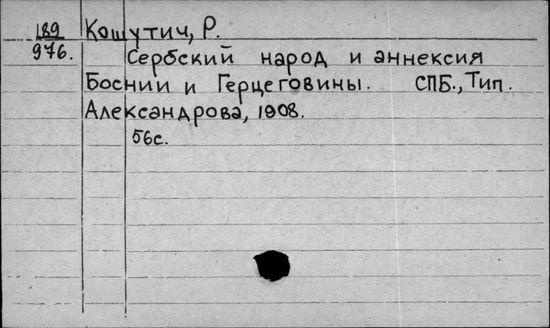 189 Кошутич, Р.
976. Сербский народ и аннексия
Боснии и Герцеговины. СПБ., Тип.
Александрова, 1908.
56с.